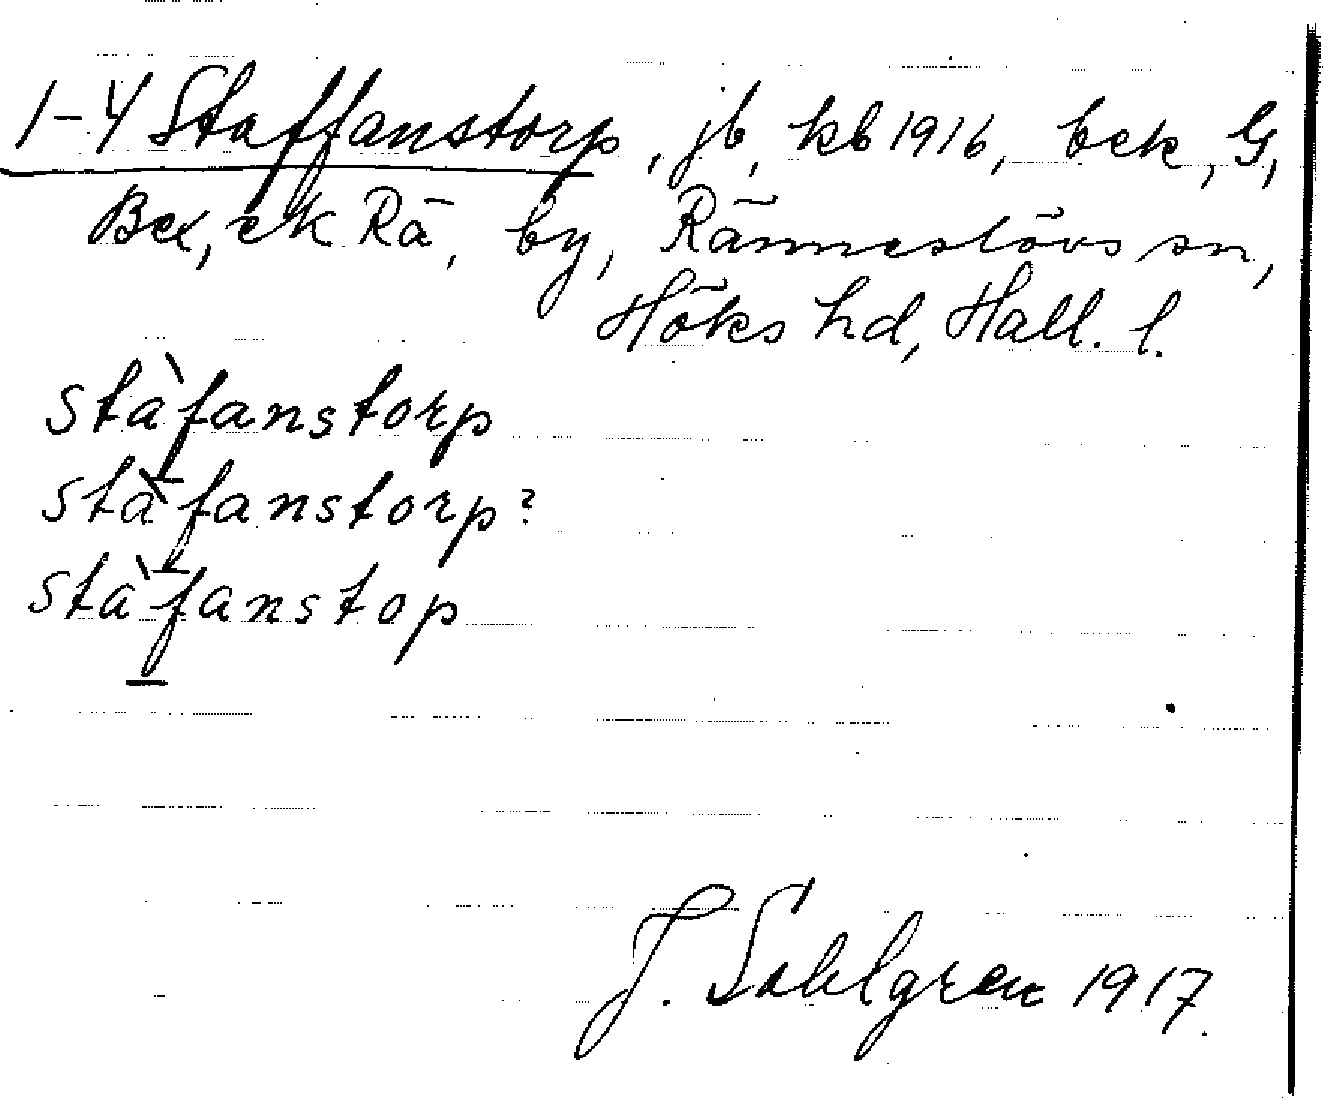 1-4 Staffanstorp, jb, kb 1916, bek, G,
Bex, ek Rä, by, Ränneslövs sn,
Höks hd, Hall. l.
stàfanstorp
stàfanstorp?
stàfanstop
J. Sahlgren 1917.